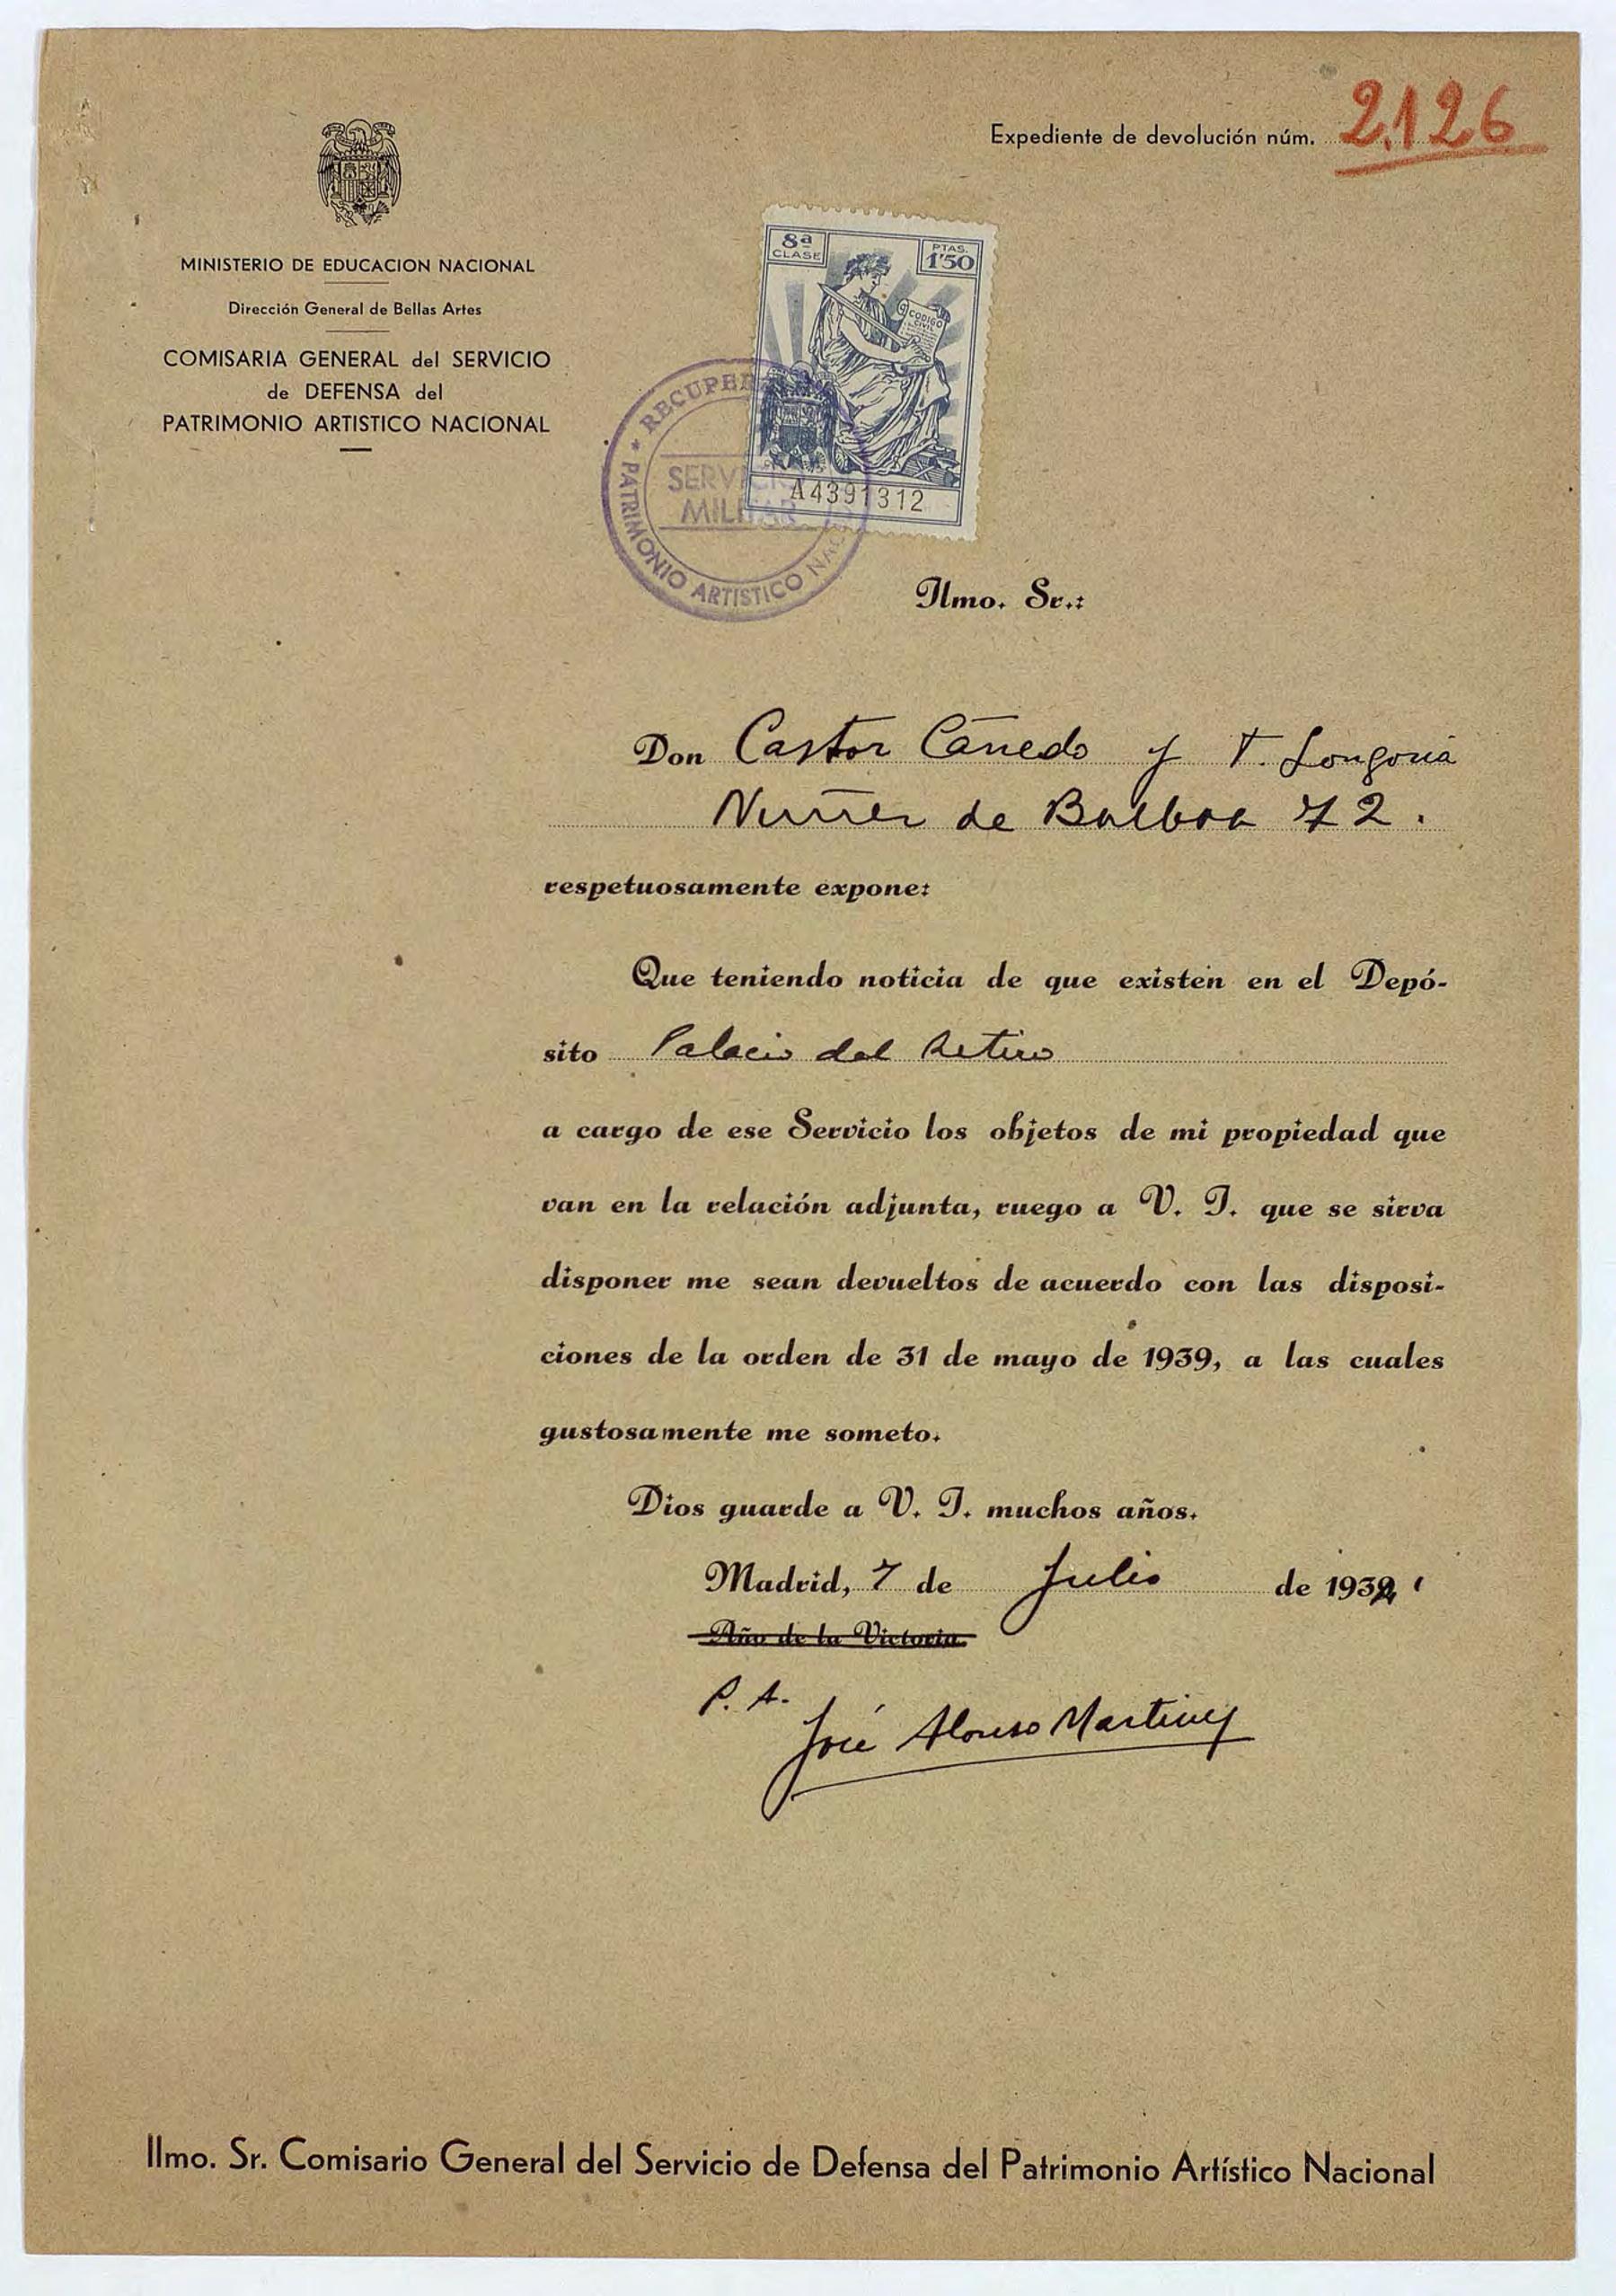 Expediente de devolución núm. 2.126
MINISTERIO DE EDUCACION NACIONAL
Dirección General de Bellas Artes
COMISARIA GENERAL del SERVICIO
de DEFENSA del
PATRIMONIO ARTISTICO NACIONAL
8ª CLASE
PTAS. 1'50
CODIGO
CIVIL
A4391312
SERVICIO
MILITAR
PATRIMONIO ARTISTICO
Ilmo. Sr.:
Don Castor Cañedo y T. Longoria
Nuñez de Balboa 72.
respetuosamente expone:
Que teniendo noticia de que existen en el Depó-
sito Palacio del Retiro
a cargo de ese Servicio los objetos de mi propiedad que
van en la relación adjunta, ruego a V. I. que se sirva
disponer me sean devueltos de acuerdo con las disposi-
ciones de la orden de 31 de mayo de 1939, a las cuales
gustosamente me someto.
Dios guarde a V. I. muchos años.
Madrid, 7 de Julio de 193
Año de la Victoria.
P. A.
José Alonso Martinez
Ilmo. Sr. Comisario General del Servicio de Defensa del Patrimonio Artístico Nacional